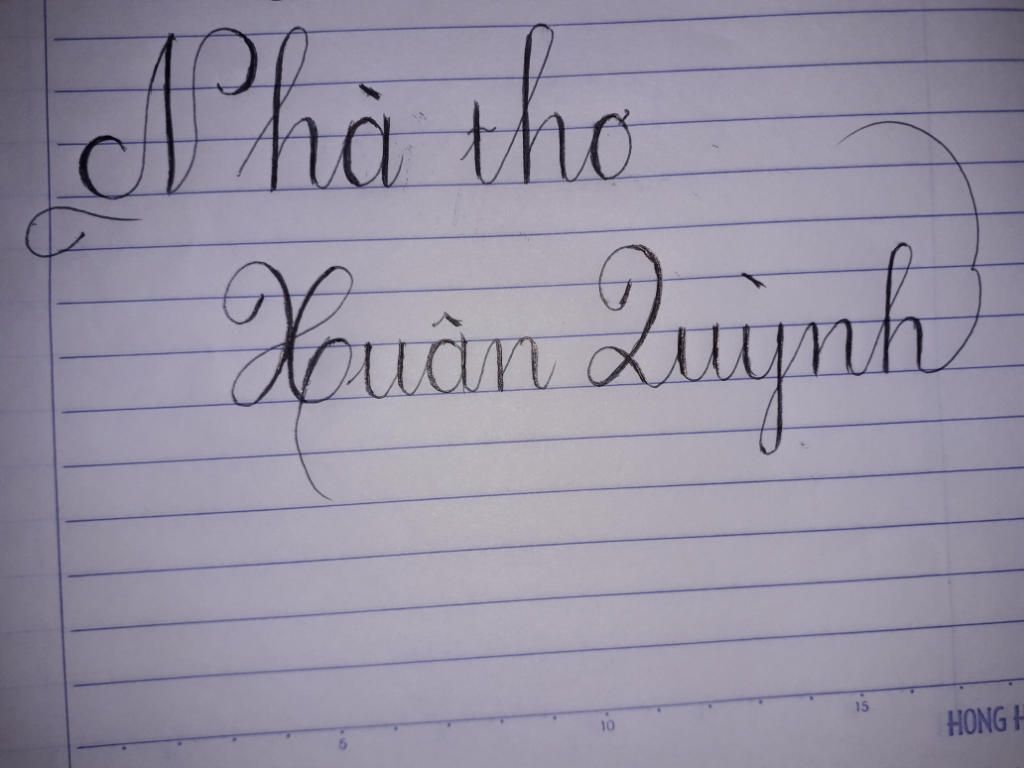 Nhà thơ
Xuân Quỳnh
5 10 15
HONG H